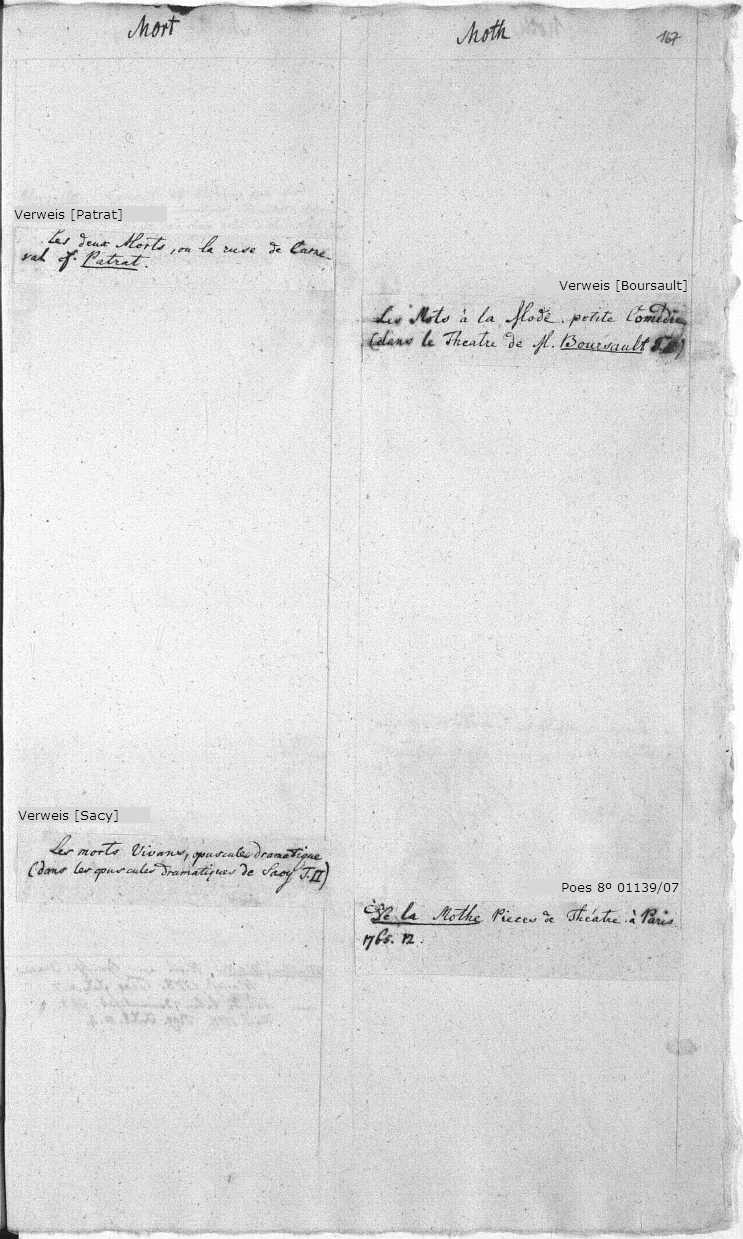 Mort
Verweis [Patrat]
Les deux Morts, ou la ruse de Carne-
val f. Patrat.
Verweis [Sacy]
Les morts Vivans, opuscules dramatique
(dans les opuscules dramatiques de Sacy T.II)
Moth
167
Verweis [Boursault]
Les Mots à la Mode. petite Comedie
(dans le Theatre de M. Boursault
Poes 8º 01139/07
de la Mothe Pieces de Théatre à Paris
1765. 12.